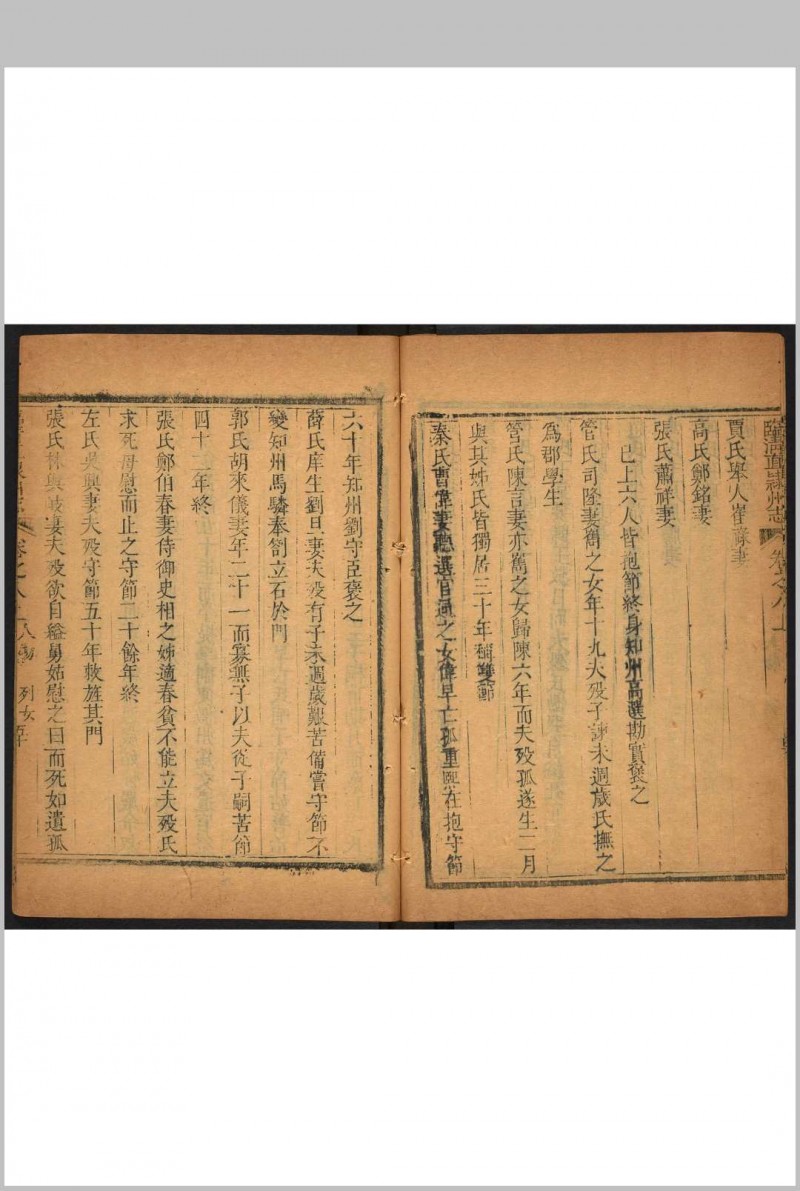 直隸州志
賈氏舉人崔蔴妻
高氏鄭銘妻
張氏蕭祥妻
已上六人皆抱節終身知州高選勘實褒之
管氏司隆妻舊之女年十九夫歿子諫未週歲氏撫之
為郡學生
管氏陳言妻亦舊之女歸陳六年而夫歿孤遂生二月
與其姊氏皆獨居三十年稱雙節
秦氏曹偉妻聽選官通之女偉早亡孤重熙在抱守節
六十年知州劉守臣褒之
薛氏庠生劉旦妻夫歿有子未週歲艱苦備嘗守節不
變知州馬驎奉劄立石於門
郭氏胡來儀妻年二十一而寡無子以夫從子嗣苦節
四十二年終
張氏鄭伯春妻侍御史相之姊適春貧不能立夫歿氏
求死母慰而止之守節二十餘年終
左氏吳興妻夫歿守節五十年敕旌其門
張氏林與岐妻夫歿欲自縊舅姑慰之曰而死如遺孤
卷之八 列女